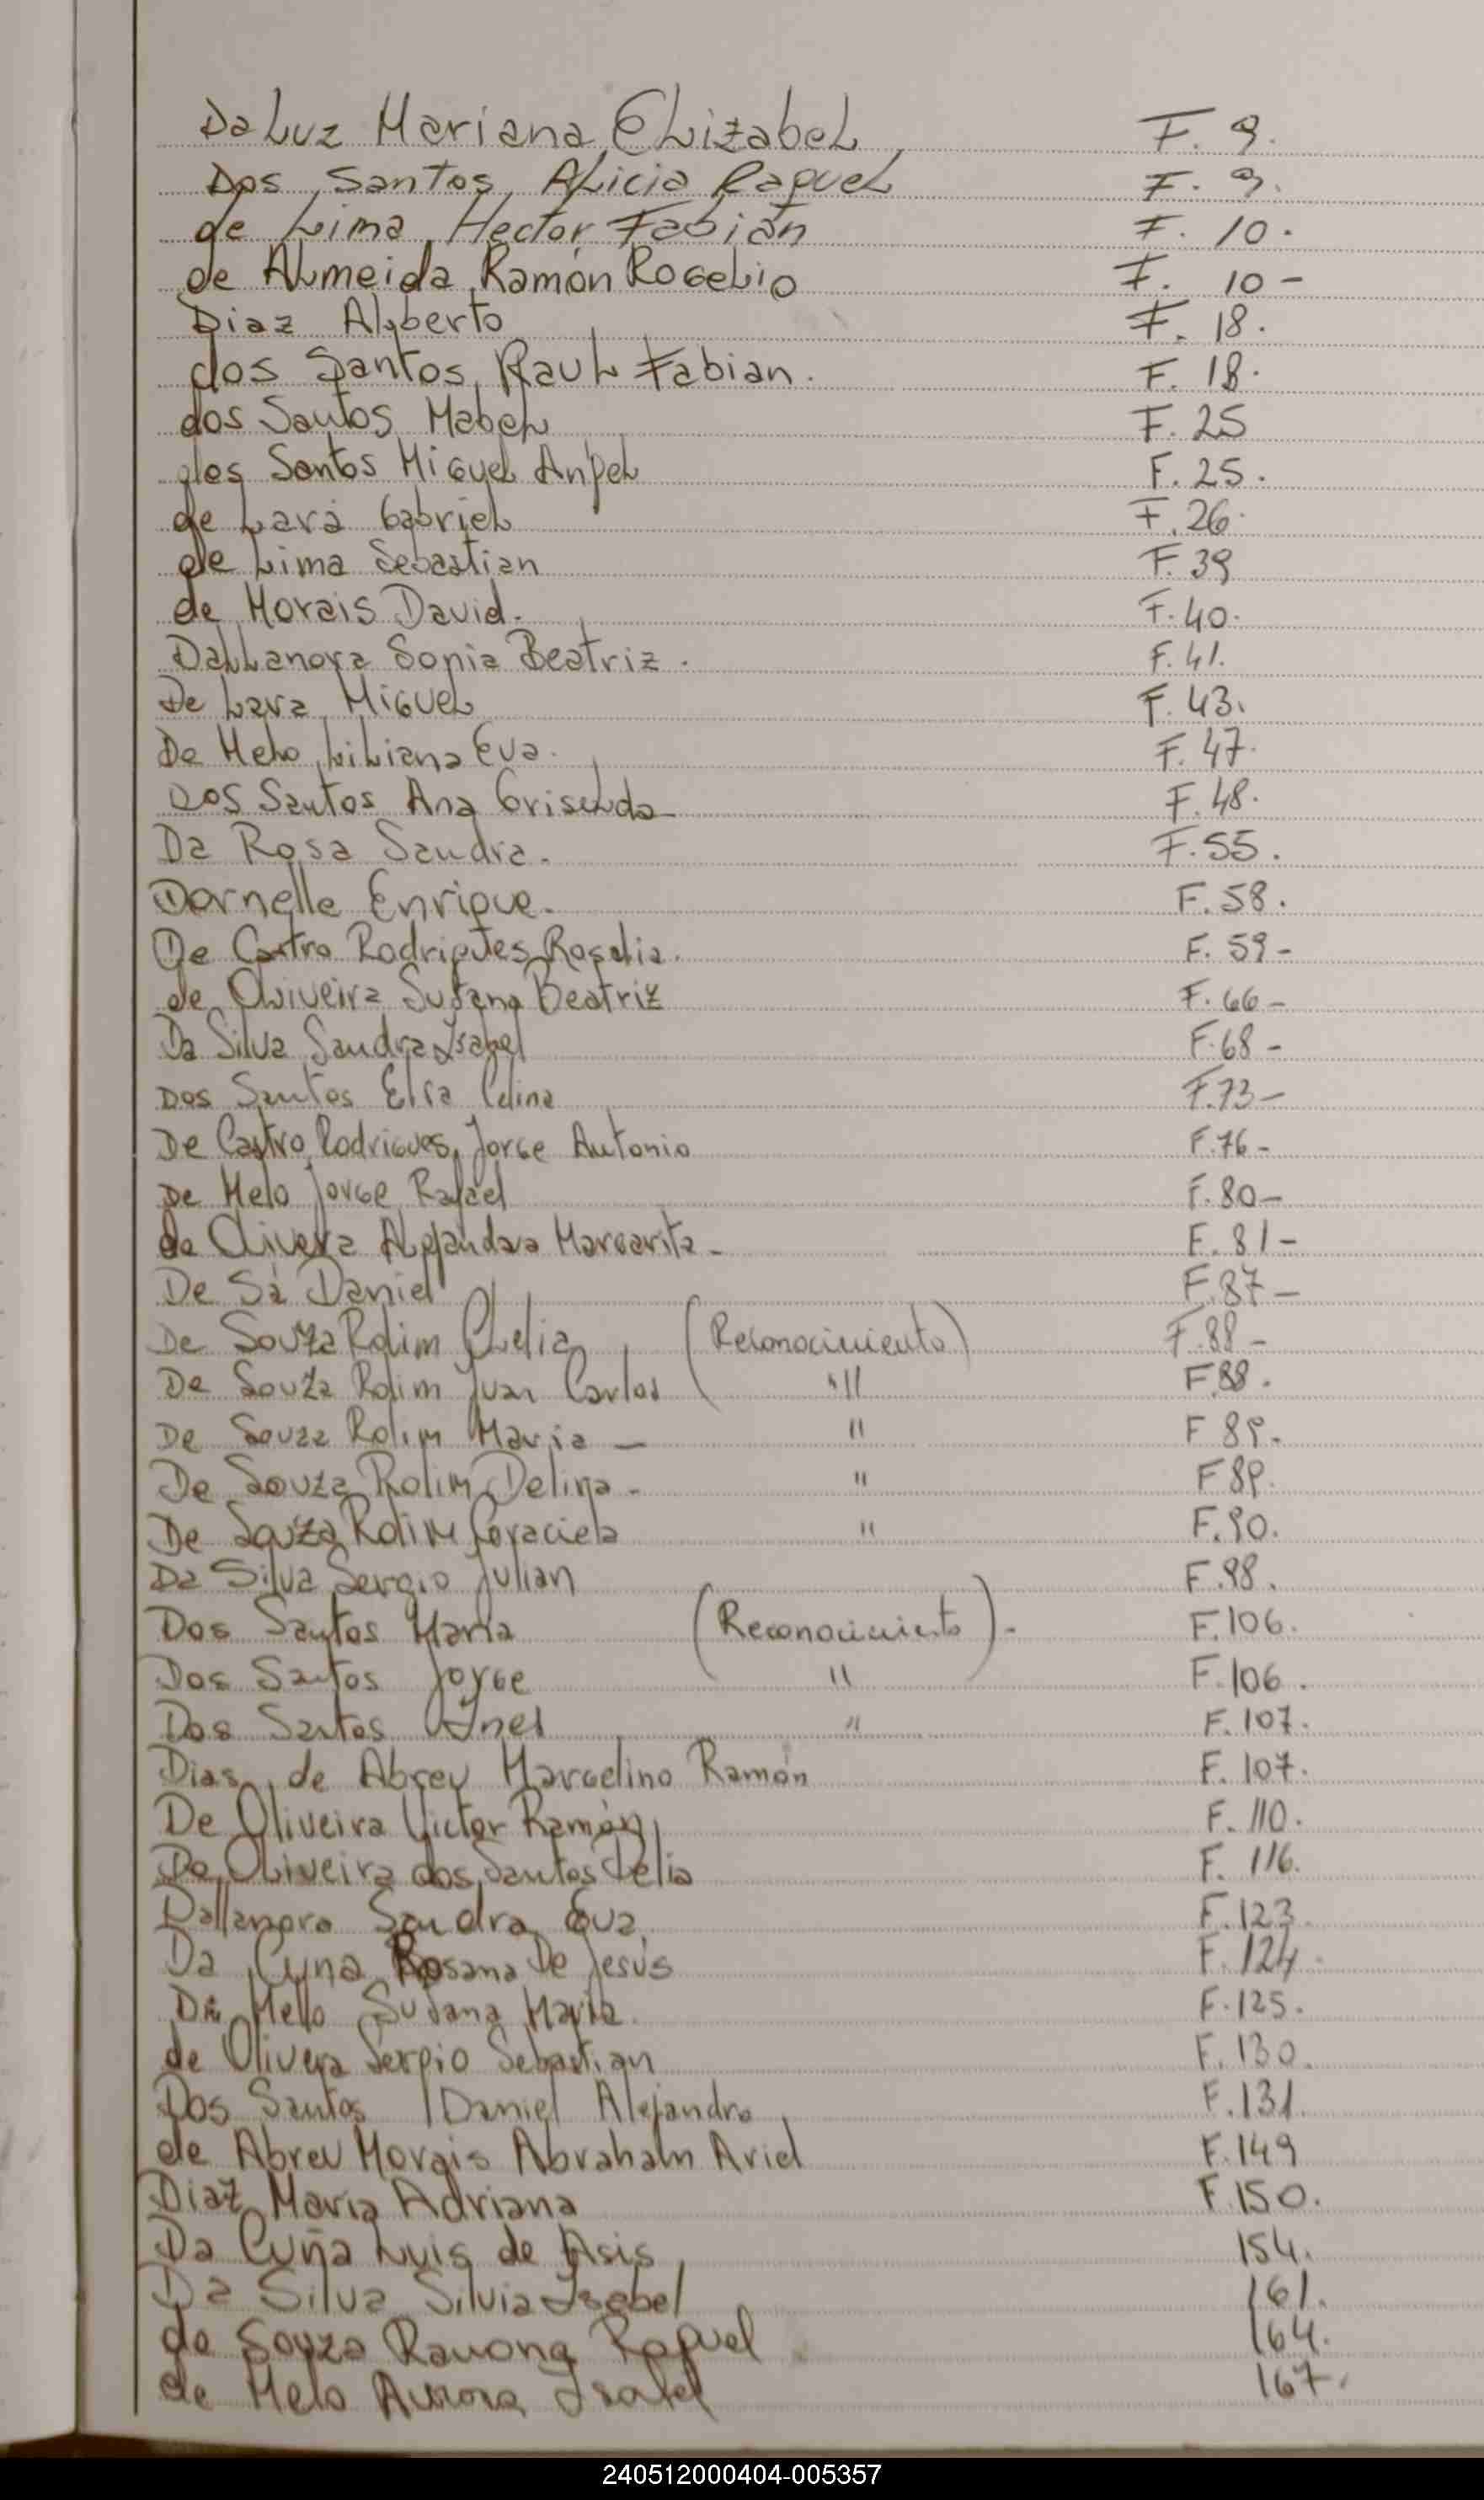 Da Luz Mariana Elizabel F. 9.
Dos Santos, Alicia Raquel F. 9.
de Lima, Hector Fabián F. 10.
de Almeida, Ramón Rogelio F. 10-
Diaz Alberto F. 18.
dos Santos, Raul Fabian. F. 18.
dos Santos Mabel F. 25
dos Santos Miguel Angel F. 25.
de Lara Gabriel F. 26.
de Lima Sebastian F. 39
de Morais David. F. 40.
Dallanora Sonia Beatriz. F. 41.
De Lara Miguel F. 43.
De Melo, Liliana Eva. F. 47.
Dos Santos Ana Griselda F. 48.
Da Rosa Sandra. F. 55.
Dornelle Enrique. F. 58.
De Castro Rodrigues Rosalia. F. 59-
de Oliveira Susana Beatriz F. 66-
Da Silva Sandra Isabel F. 68-
Dos Santos Elsa Celina F. 73-
De Castro Rodrigues, Jorge Antonio F. 76-
De Melo Jorge Rafael F. 80-
de Olivera Alejandra Margarita- F. 81-
De Sá Daniel F. 87-
De Souza Rolim Clelia (Reconocimiento) F. 88-
De Souza Rolim Juan Carlos ( " F. 88.
De Souza Rolim Maria - " F 89.
De Souza Rolim Delina- " F 89.
De Souza Rolim Graciela " F. 90.
Da Silva Sergio Julian F. 98.
Dos Santos Maria (Reconocimiento)- F. 106.
Dos Santos Jorge " F. 106.
Dos Santos Inel " F. 107.
Dias, de Abreu Marcelino Ramón F. 107.
De Oliveira Victor Ramón F. 110.
De Oliveira dos Santos Delia F. 116.
Dallanora Sandra Eva. F. 123
Da Cuna Rosana De Jesús F. 124.
De Mello Susana Maria. F. 125.
de Olivera Sergio Sebastian F. 130.
Dos Santos Daniel Alejandro F. 131.
de Abreu Morais Abraham Ariel F. 149
Diaz Maria Adriana F. 150.
Da Cuña Luis de Asis 154.
Da Silva Silvia Isabel 161.
de Souza Ramona Raquel 164.
de Melo Aurora Isabel 167.
240512000404-005357